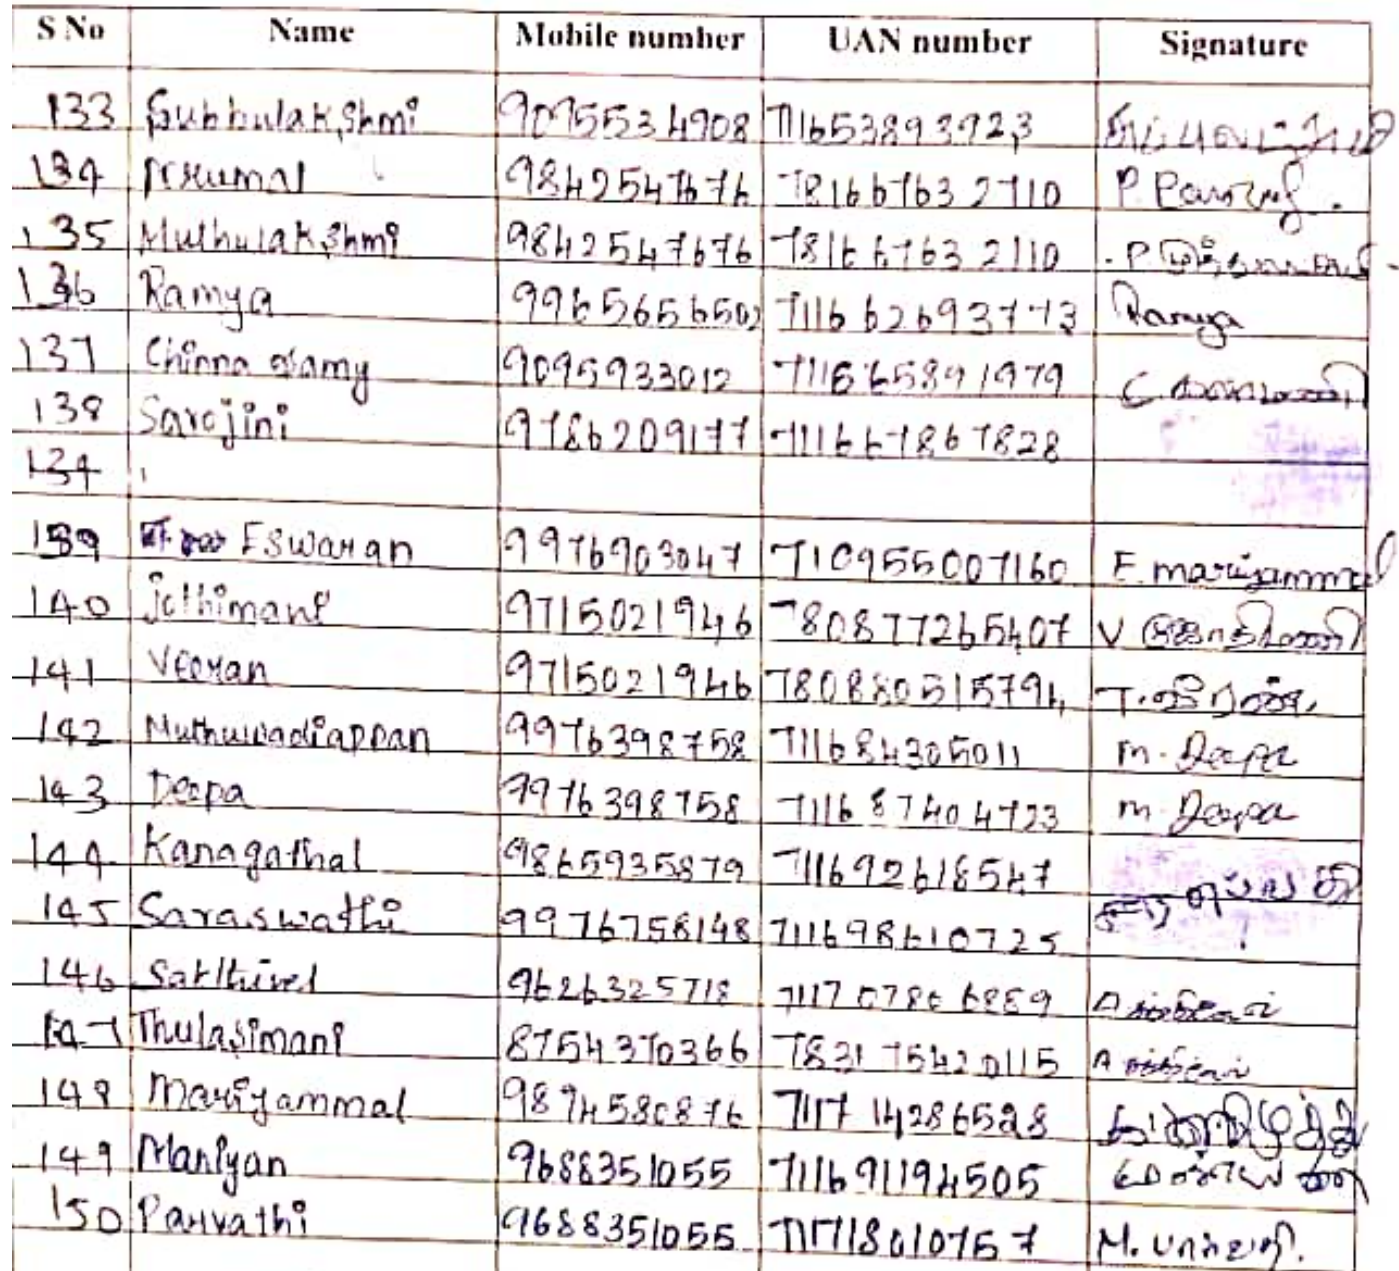 S No Name Mobile number UAN number Signature
133 Subbulakshmi 9095534908 711653893923
134 Perumal 9842547676 781667632110
135 Muthulakshmi 9842547676 781667632110
136 Ramya 9965656502 711662693773 Ramya
137 Chinna samy 9095933012 711565891979
138 Sarojini 9786209177 711667867828
134
139 Eswaran 9976903047 710955007160 E. mariyammal
140 Jothimani 9715021946 780877265407 V ஜோதிமணி
141 Veeran 9715021946 780880515794 T. வீரன்.
142 9976398758 711684305011 m. Deepa
143 Deepa 9976398758 711687404723 m. Deepa
144 Kanagathal 9865935879 711692618547
145 Saraswathi 9976758148 711698610725 சரஸ்வதி
146 Sakthivel 9626325718
147 Thulasimani 8754370366 783175420115
148 Mariyammal 9894580876 711714286528
149 Maniyan 9688351055 711691194505
150 Parvathi 9688351055 711718010757 M. பார்வதி.